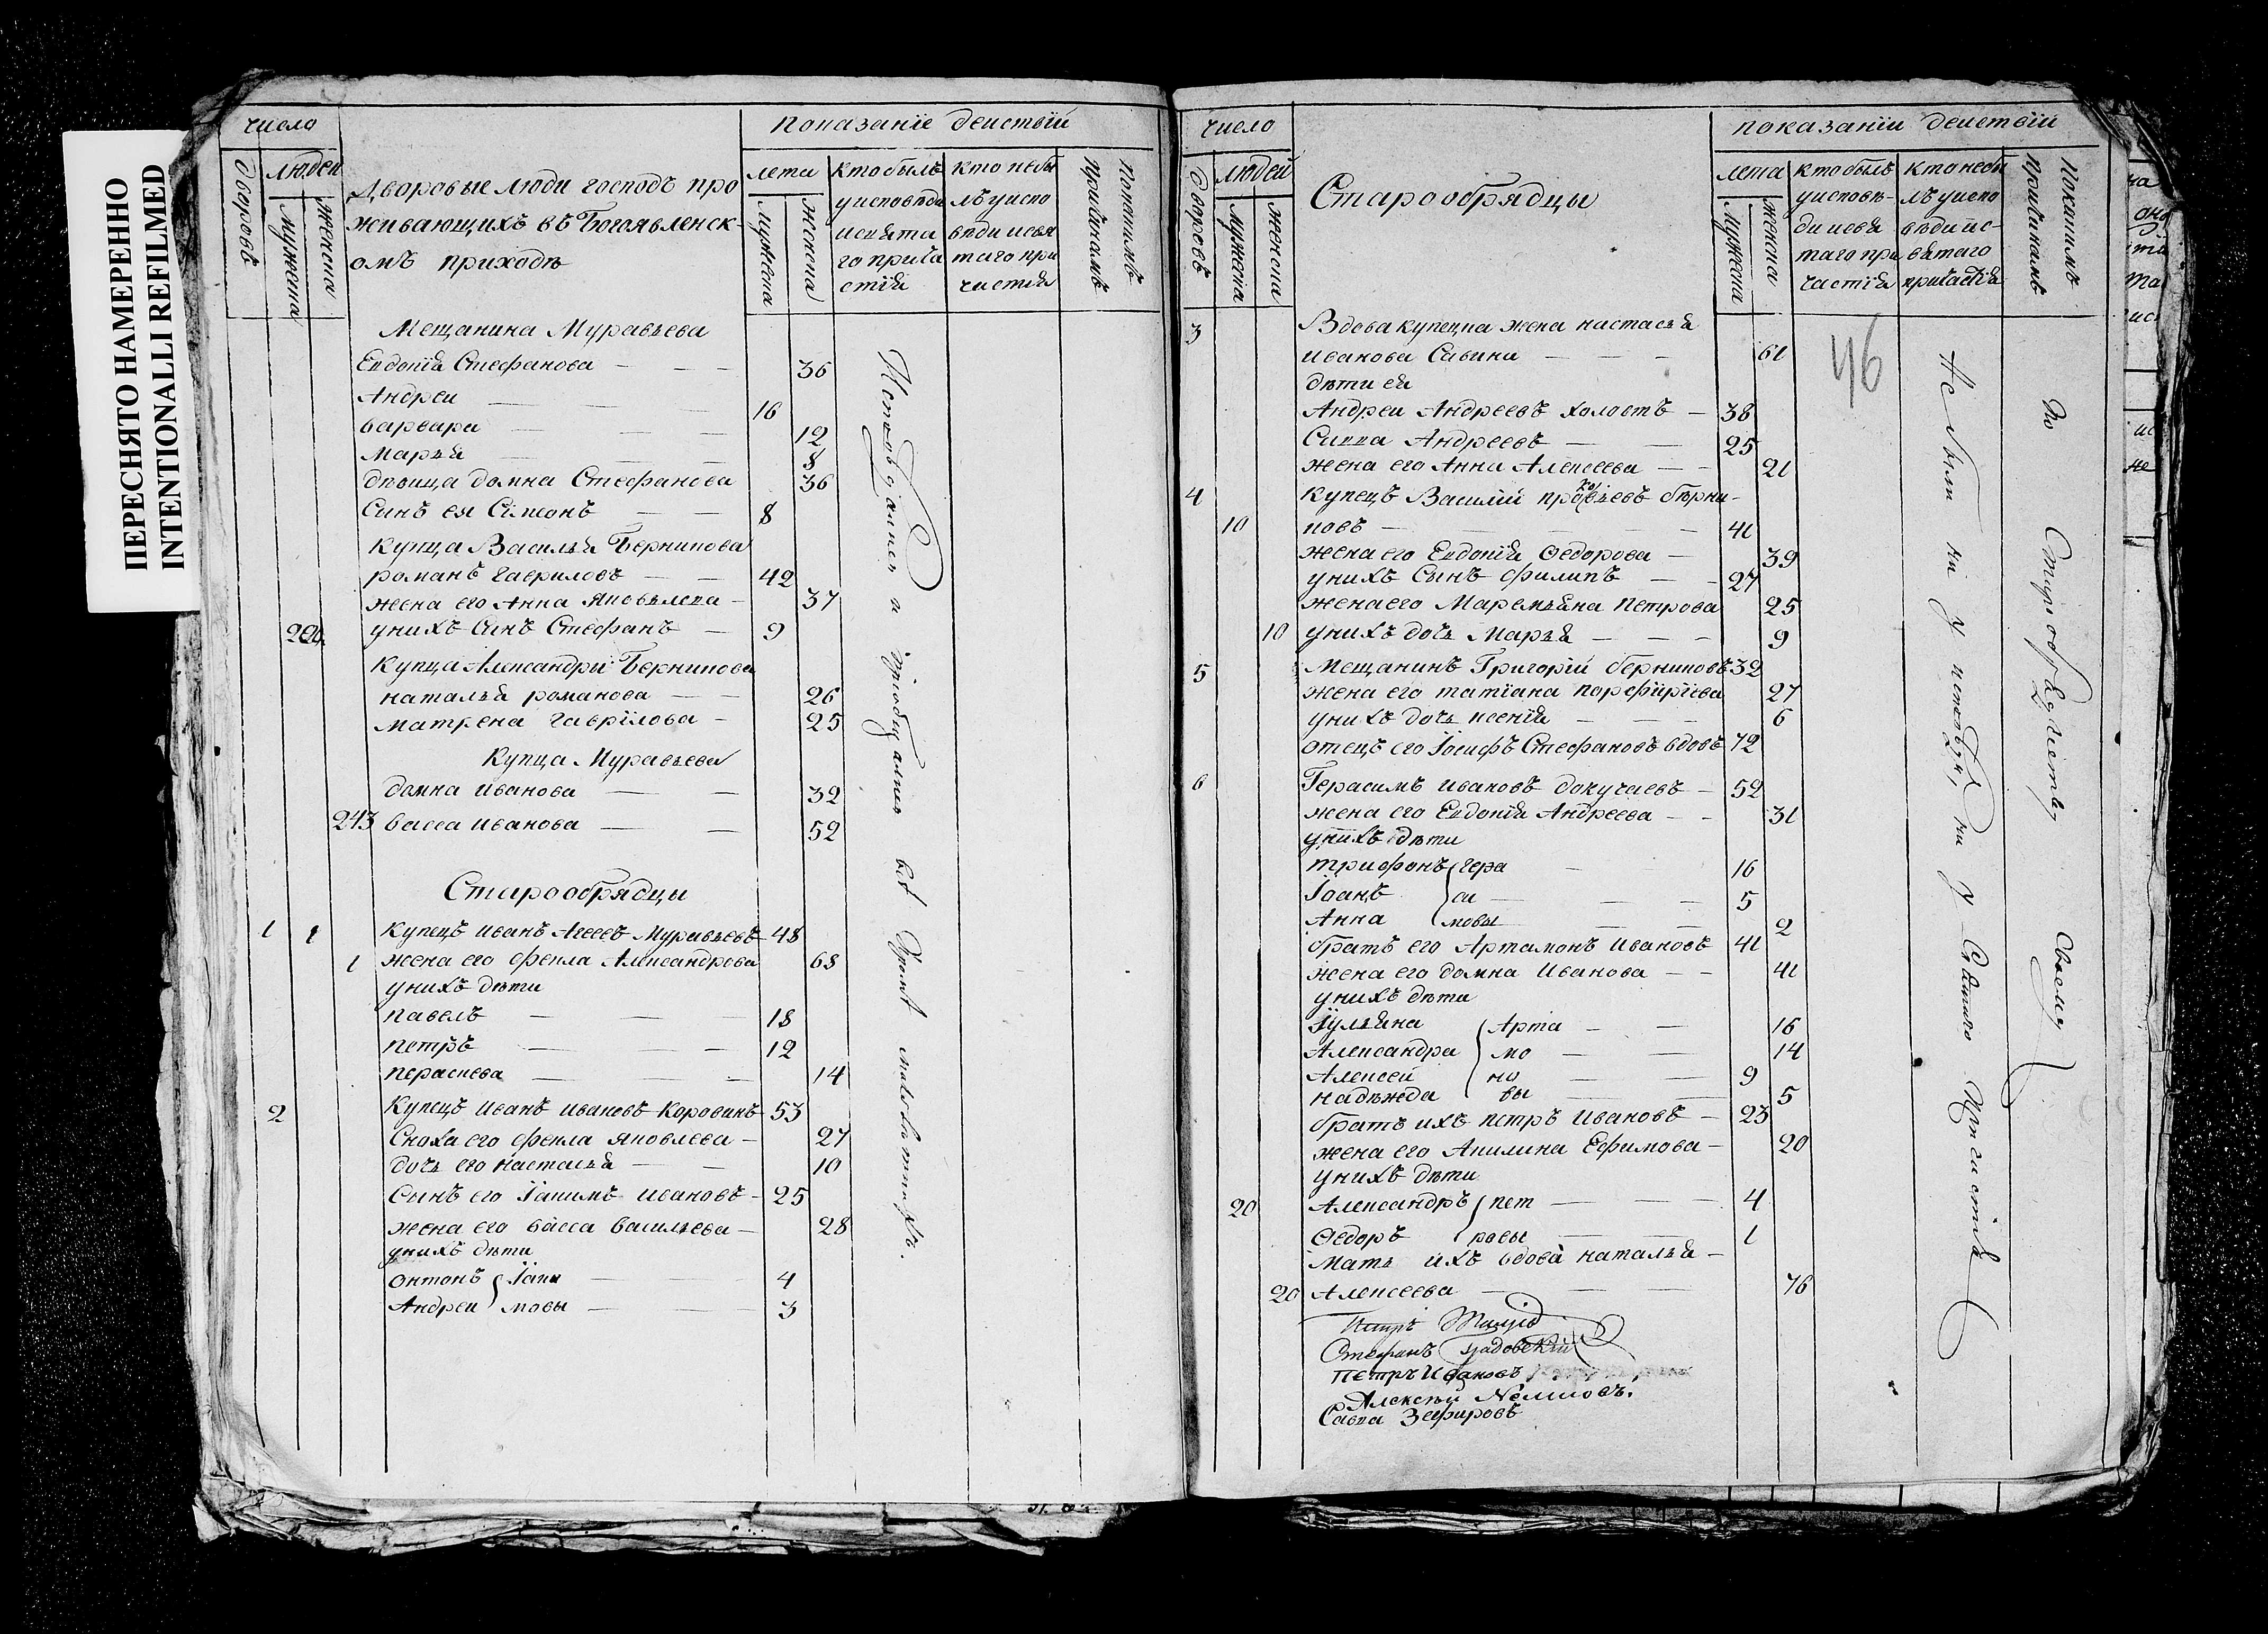 ПЕРЕСНЯТО НАМЕРЕННО
INTENTIONALLI REFILMED
число
Показанїе деиствїй
дворовъ
людеи
мужеска
женска
Дворовые люди господъ про
живающихъ въ Богоявленск-
омъ приходѣ
лета
мужеска
женска
кто былъ
уисповѣди
исвята
го прича
стїя
кто небы
лъ уиспо
вѣди исвя
таго при
частїя
Покакимъ
Причинамъ
Мещанина Муравьева
Евдокїя Стефанова — — — 36
Андреи — — — 16
варвара — — — 12
Марья — — — 8
дѣвица домна Стефанова 36
Сынъ ея Сімеонъ — — 8
Купца Василья Берникова
романъ гавриловъ — — 42
жена его Анна Яковълева — 37
унихъ Сынъ Стефанъ — 9
Купца Александра Берникова
наталья романова — — 26
матрена гаврїлова — 25
Купца Муравьева
домна иванова — — 32
243 васса иванова — — 52
Исповѣдались и приобщались въ
Старообрядцы
1 1 Купецъ иванъ Агеевъ Муравьевъ 48
1 жена его фекла Александрова 68
унихъ дѣти
павелъ — — — 18
петръ — — — 12
параскева — — 14
2 Купецъ иванъ ивановъ Коровинъ 53
Сноха его фекла яковлева — 27
дочь его настасья — — 10
Сынъ его Їакимъ ивановъ — 25
жена его васса васильева — 28
унихъ дѣти
онтонъ { Їаки — — 4
Андреи } мовы — — 3
число
показанїи деиствїй
дворовъ
людей
мужеска
женска
Старообрядцы
лета
мужеска
женска
кто былъ
уисповѣ-
ди исвя
таго при
частїя
Кто небы
лъ уиспо
вѣди ис-
вятаго
причастїя
Покакимъ
Причинамъ
46
3 Вдова купецка жена настасья
иванова Савина — — — 61
дѣти ея
Андреи Андреевъ холостъ — 38
Савва Андреевъ — — 25
жена его Анна Алексеева — — 21
4 Купецъ Василїй прокофьевъ бѣрни-
10 ковъ — — — 41
жена его Евдокїя Ѳедорова — 39
унихъ Сынъ филипъ — — 27
жена его Маремьяна Петрова 25
10 унихъ дочь Марья — — — 9
5 Мещанинъ Григорїй берниковъ 32
жена его татїана порфирїева 27
унихъ дочь ксенїя — — — 6
отецъ его Їосифъ Стефановъ вдовъ 72
6 Герасимъ ивановъ докучаевъ — 52
жена его Евдокїя Андреева — — 31
унихъ дѣти
трифонъ { гера — 16
Їоанъ } си — — — 5
Анна { мовы — — 2
братъ его Артамонъ ивановъ 41
жена его домна Иванова — — 41
унихъ дѣти
Їульяна { Арта — — 16
Александра } мо — — 14
Алексей { но — — 9
надѣжда вы — — 5
братъ ихъ петръ ивановъ — 23
жена его Акилина Ефимова — 20
унихъ дѣти
20 Александръ { пет — — — 4
Ѳедоръ } ровы — — 1
Мать ихъ вдова наталья —
20 Алексеева — — — 76
Не были ни у исповѣди, ни у Святаго Причастїя
По Старообрядчеству Своему
Петръ
Стефанъ
Петръ Ивановъ
Алексѣй
Савва Зефировъ